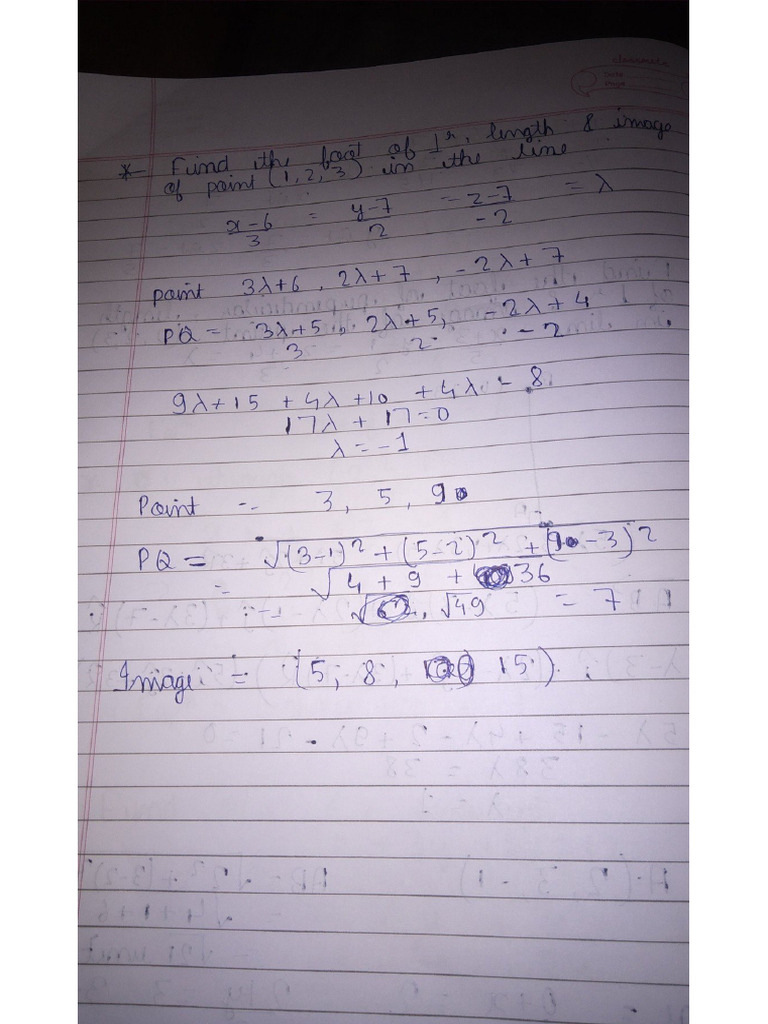 classmate
Date
Page
*- Find the foot of ⊥r, length & image
of point (1, 2, 3) in the line
x-6/3 = y-7/2 = z-7/-2 = λ
point 3λ+6, 2λ+7, -2λ+7
PQ = 3λ+5, 2λ+5, -2λ+4
3 2 -2
9λ+15 + 4λ+10 + 4λ - 8
17λ + 17=0
λ = -1
Point - 3, 5, 9
PQ = √(3-1)² + (5-2)² + (9-3)²
= √4 + 9 + 36
√49 = 7
Image = (5, 8, 15)